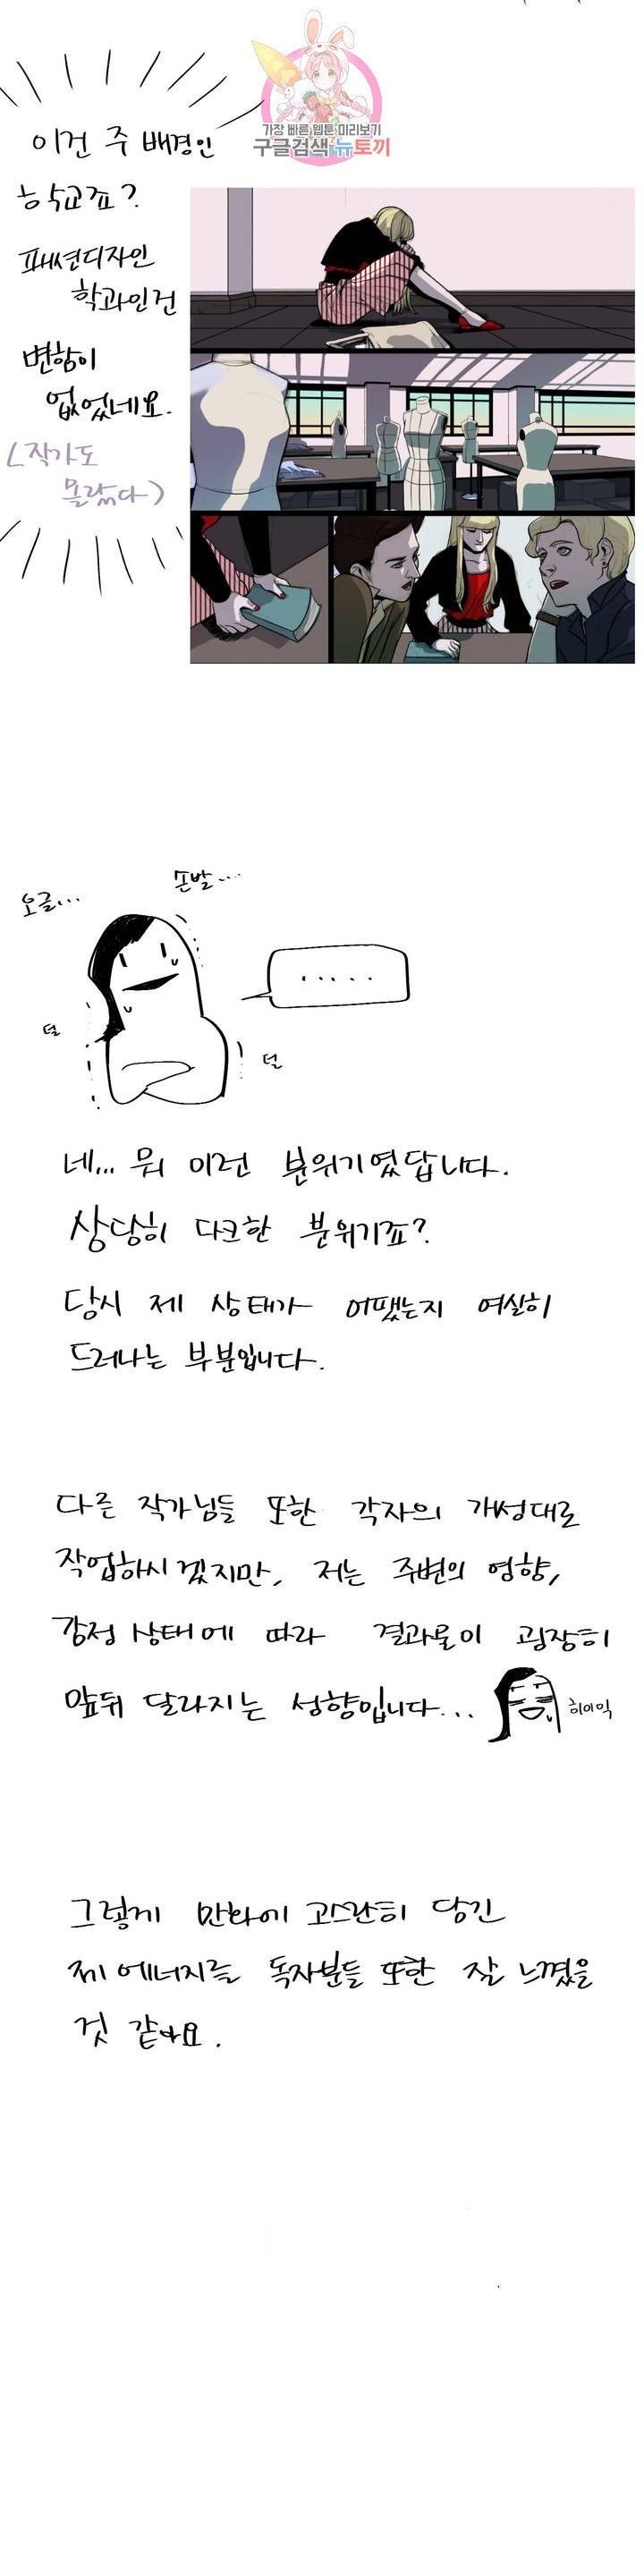 가장 빠른 웹툰 미리보기
구글검색 뉴토끼
이건 주 배경인
학교죠?
패션디자인
학과인건
변함이
없었네요.
(작가도
몰랐다)
오글...
손발....
.....
덜
덜
네... 뭐 이런 분위기였답니다.
상당히 다크한 분위기죠?
당시 제 상태가 어땠는지 여실히
드러나는 부분입니다.
다른 작가님들 또한 각자의 개성대로
작업하시겠지만, 저는 주변의 영향,
감정 상태에 따라 결과물이 굉장히
앞뒤 달라지는 성향입니다...
히이익
그렇게 만화에 고스란히 담긴
제 에너지를 독자분들 또한 잘 느꼈을
것 같아요.